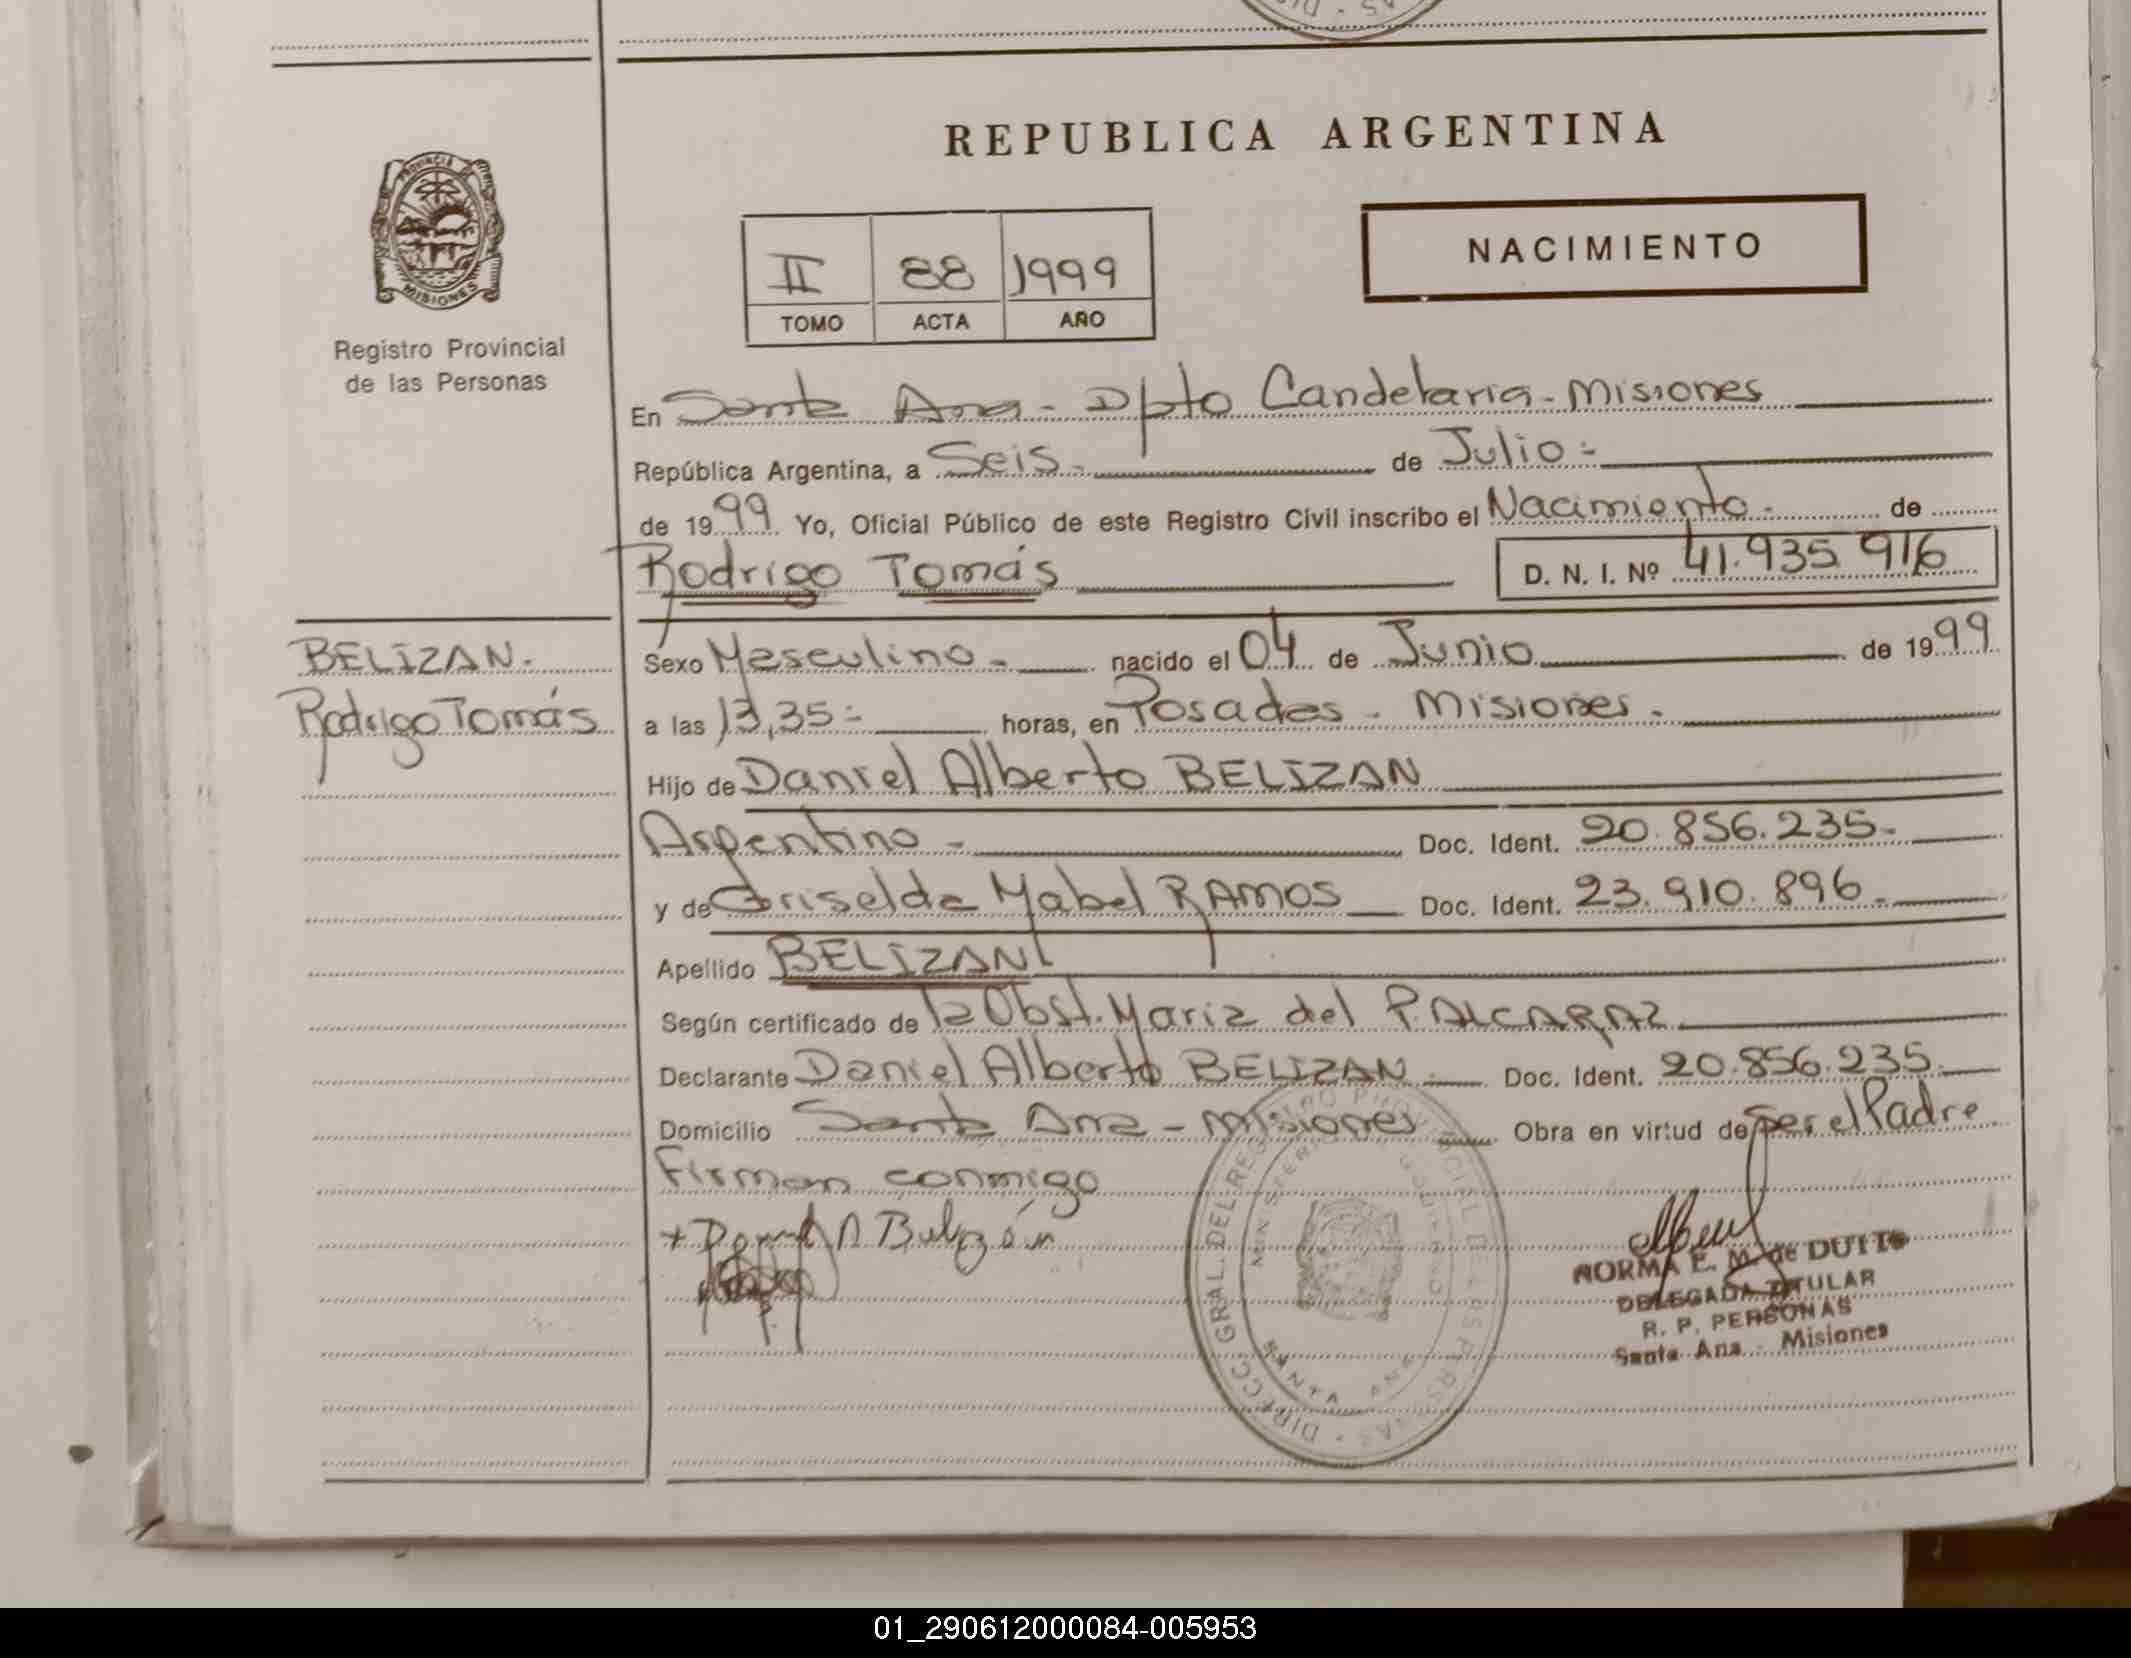 REPUBLICA ARGENTINA
PROVINCIA DE MISIONES
Registro Provincial
de las Personas
NACIMIENTO
II 88 1999
TOMO ACTA AÑO
En Santa Ana - Dpto Candelaria - Misiones
República Argentina, a Seis.- de Julio.-
de 1999 Yo, Oficial Público de este Registro Civil inscribo el Nacimiento.- de
Rodrigo Tomás D. N. I. Nº 41.935.916
BELIZAN.
Rodrigo Tomás
Sexo Masculino.- nacido el 04 de Junio de 1999
a las 13,35.- horas, en Posadas - Misiones.-
Hijo de Daniel Alberto BELIZAN
Argentino - Doc. Ident. 20.856.235.-
y de Griselda Mabel RAMOS Doc. Ident. 23.910.896.-
Apellido BELIZAN
Según certificado de la Obst. Maria del P. ALCARAZ
Declarante Daniel Alberto BELIZAN Doc. Ident. 20.856.235.
Domicilio Santa Ana - Misiones Obra en virtud de ser el Padre
Firman conmigo
DIRECC. GRAL. DEL REGISTRO PROVINCIAL DE LAS PERSONAS
MINISTERIO GOBIERNO
SANTA ANA
NORMA E. M. de DUTTO
DELEGADA TITULAR
R. P. PERSONAS
Santa Ana - Misiones
01_290612000084-005953